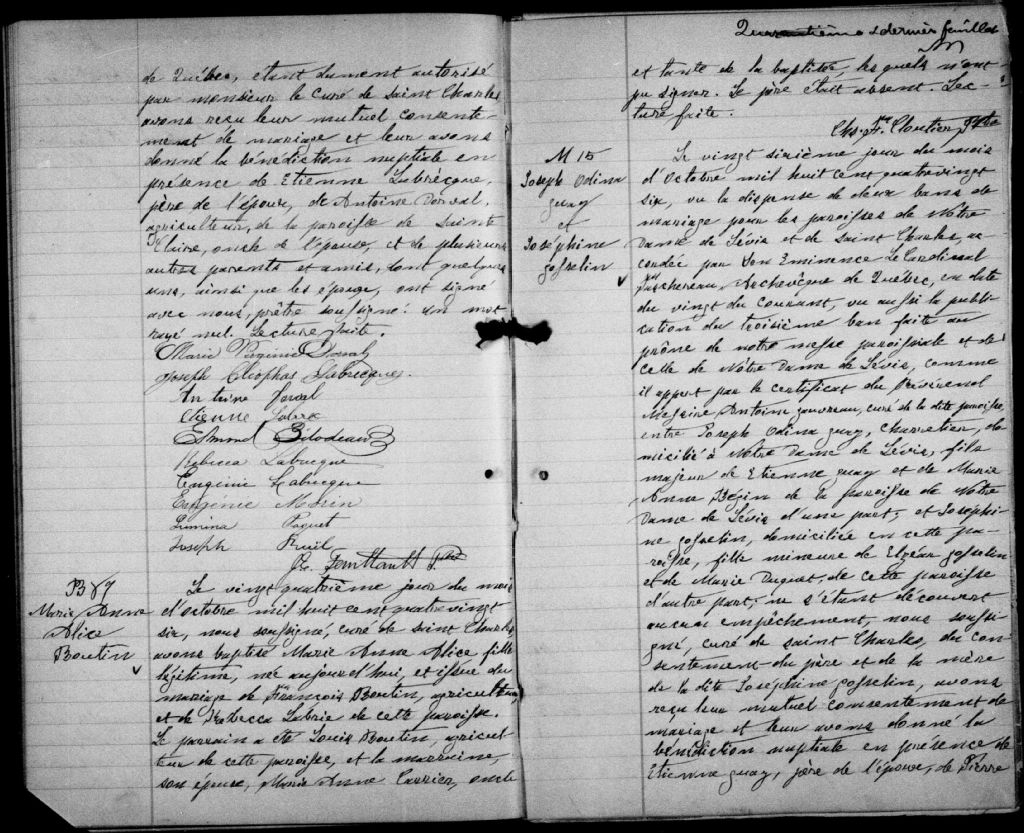 de Québec, étant dument autorisé
par monsieur le curé de Saint Charles
avons reçu leur mutuel consente-
ment de mariage et leur avons
donné la bénédiction nuptiale en
présence de Etienne Labrècque,
père de l'époux, de Antoine Dorval,
agriculteur, de la paroisse de Saint
Claire, oncle de l'épouse, et de plusieurs
autres parents et amis, dont quelques
uns, ainsi que les époux, ont signé
avec nous, prêtre soussigné. Un mot
rayé nul. Lecture faite.
Marie Virginie Dorval
Joseph Cléophas Labrecques.
Antoine Dorval
Etienne Labrec
Edmond Bilodeau
Rebecca Labrecque
Eugénie Labrecque
Eugénie Morin
Lumina Paquet
Joseph Fruil
Ptre
B 87
Marie Anne
Alice
Boutin
Le vingt quatrième jour du mois
d'octobre mil huit cent quatrevingt
six, nous soussigné, curé de Saint Charles
avons baptisé Marie Anne Alice fille
légitime, née aujourd'hui, et issue du
mariage de François Boutin, agriculteur,
et de Rebecca Labrie de cette paroisse.
Le parrain a été Louis Boutin, agricul-
teur de cette paroisse, et la marraine,
son épouse, Marie Anne Carrier, oncle
Quarantième & dernier feuillet
et tante de la baptisée lesquels n'ont
pu signer. Le père était absent. Lec-
ture faite.
Chs. Frs. Cloutier Ptre
M 15
Joseph Odina
guay
et
Joséphine
gosselin
Le vingt sixième jour du mois
d'Octobre mil huit cent quatrevingt
six, vu la dispense de deux bans de
mariage pour les paroisses de Notre
Dame de Lévis et de Saint Charles, ac-
cordée par Son Eminence le Cardinal
Taschereau, Archevêque de Québec, en date
du vingt du courant, vu aussi la publi-
cation du troisième ban faite au
prône de notre messe paroissiale et de
celle de Notre Dame de Lévis, comme
il appert par le certificat du Révérend
Messire Antoine gauvreau, curé de la dite paroisse,
entre Joseph Odina guay, charretier, do-
micilié à Notre Dame de Lévis, fils
majeur de Etienne guay et de Marie
Anne Bégin de la paroisse de Notre
Dame de Lévis d'une part; et Joséphi-
ne gosselin, domiciliée en cette pa-
roisse, fille mineure de Elzéar gosselin
et de Marie Duquet, de cette paroisse
d'autre part, ne s'étant découvert
aucun empêchement, nous soussi-
gné, curé de saint Charles, du con-
sentement du père et de la mère
de la dite Joséphine gosselin, avons
reçu leur mutuel consentement de
mariage et leur avons donné la
bénédiction nuptiale en présence de
Etienne guay, père de l'époux, de Pierre